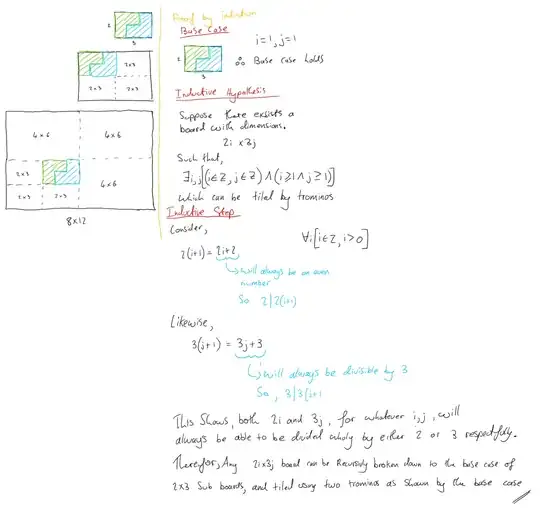 2
3
2x3
2x3
2x3
4x6
4x6
2x3
2x3
2x3
4x6
8x12
Proof by induction
Base Case
i=1, j=1
2
3
∴ Base case holds
Inductive Hypothesis
Suppose there exists a
board with dimensions.
2i x3j
Such that,
∃i,j[(i∈Z, j∈Z)∧(i≥1∧j≥1)]
which can be tiled by trominos
Inductive Step
Consider,
∀i[i∈Z, i>0]
2(i+1) = 2i+2
will always be an even
number
So 2|2(i+1)
Likewise,
3(j+1) = 3j+3
will always be divisible by 3
So, 3|3(j+1
This shows, both 2i and 3j, for whatever i,j, will
always be able to be divided wholy by either 2 or 3 respectfully.
Therefor, Any 2ix3j board can be Recursivly broken down to the base case of
2x3 Sub boards, and tiled using two trominos as shown by the base case